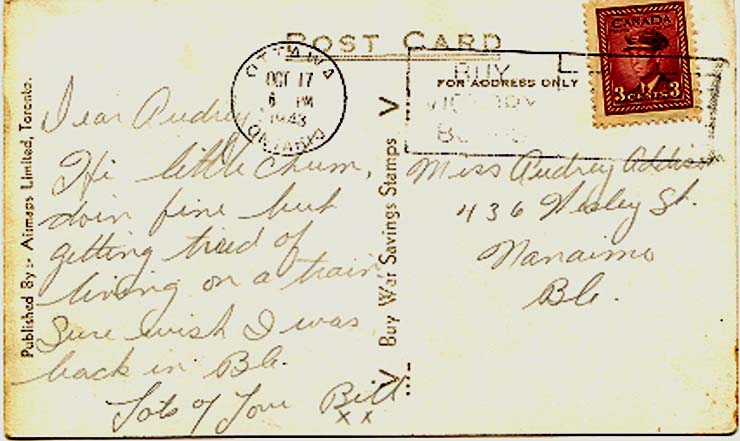 POST CARD
OTTAWA
OCT 17
6 PM
1943
ONTARIO
BUY
VICTORY
BONDS
FOR ADDRESS ONLY
CANADA
3 CENTS 3
Published By :- Airmaps Limited, Toronto.
Dear Audrey
Hi little chum,
doin fine but
getting tired of
living on a train,
Sure wish I was
back in BC.
Lots of Love Bill
x x
V Buy War Savings Stamps V
Miss Audrey Addison
436 Wesley St.
Nanaimo
BC.